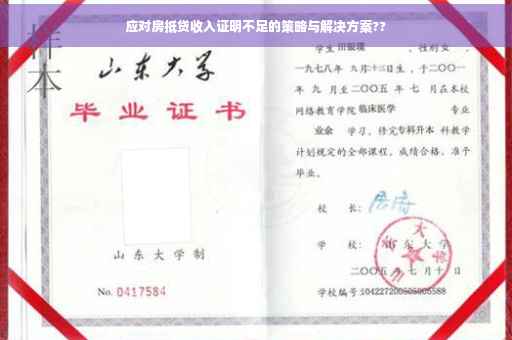 应对房抵贷收入证明不足的策略与解决方案??
样
本
山东大学
毕业证书
山东大学制
No. 0417584
学生 田银瑞 , 性别女 ,
一九七八年 九月十三日生 , 于二〇〇一
年 九 月至二〇〇五 年 七 月在本校
网络教育学院 临床医学 专业
业余 学习, 修完专科升本 科教学
计划规定的全部课程, 成绩合格, 准予
毕业。
校 长:
学 校: 山东大学
二〇〇五 年 七 月 十 日
学校编号: